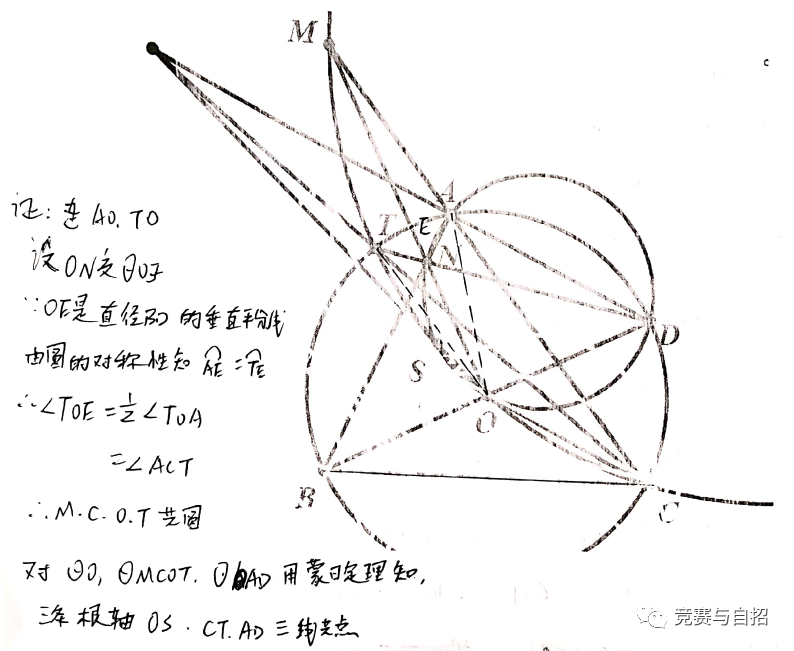 M
c
A
T
E
N
D
S
O
B
C
证: 连AO.TO
设ON交⊙O于
∵OE是直径BD的垂直平分线
由圆的对称性知 AE=TE
∴∠TOE=½∠TOA
=∠ACT
∴M.C.O.T共圆
对 ⊙O, ⊙MCOT. AD 用蒙日定理知,
三条根轴 OS . CT. AD 三线共点
竞赛与自招